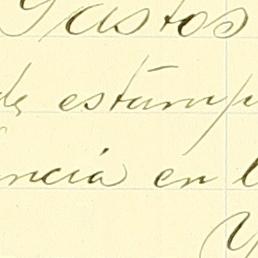 Gastos
de estamp
encia en l